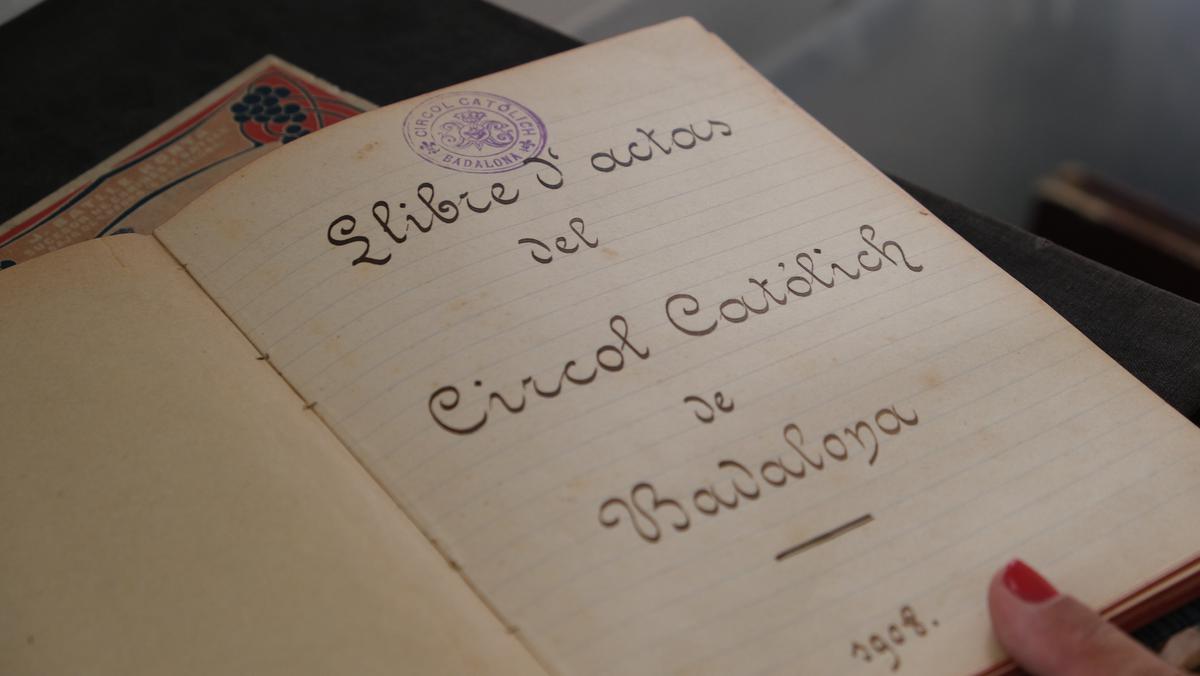 CIRCOL CATÓLICH
BADALONA
Llibre d' actas
del
Circol Católich
de
Badalona
1908.